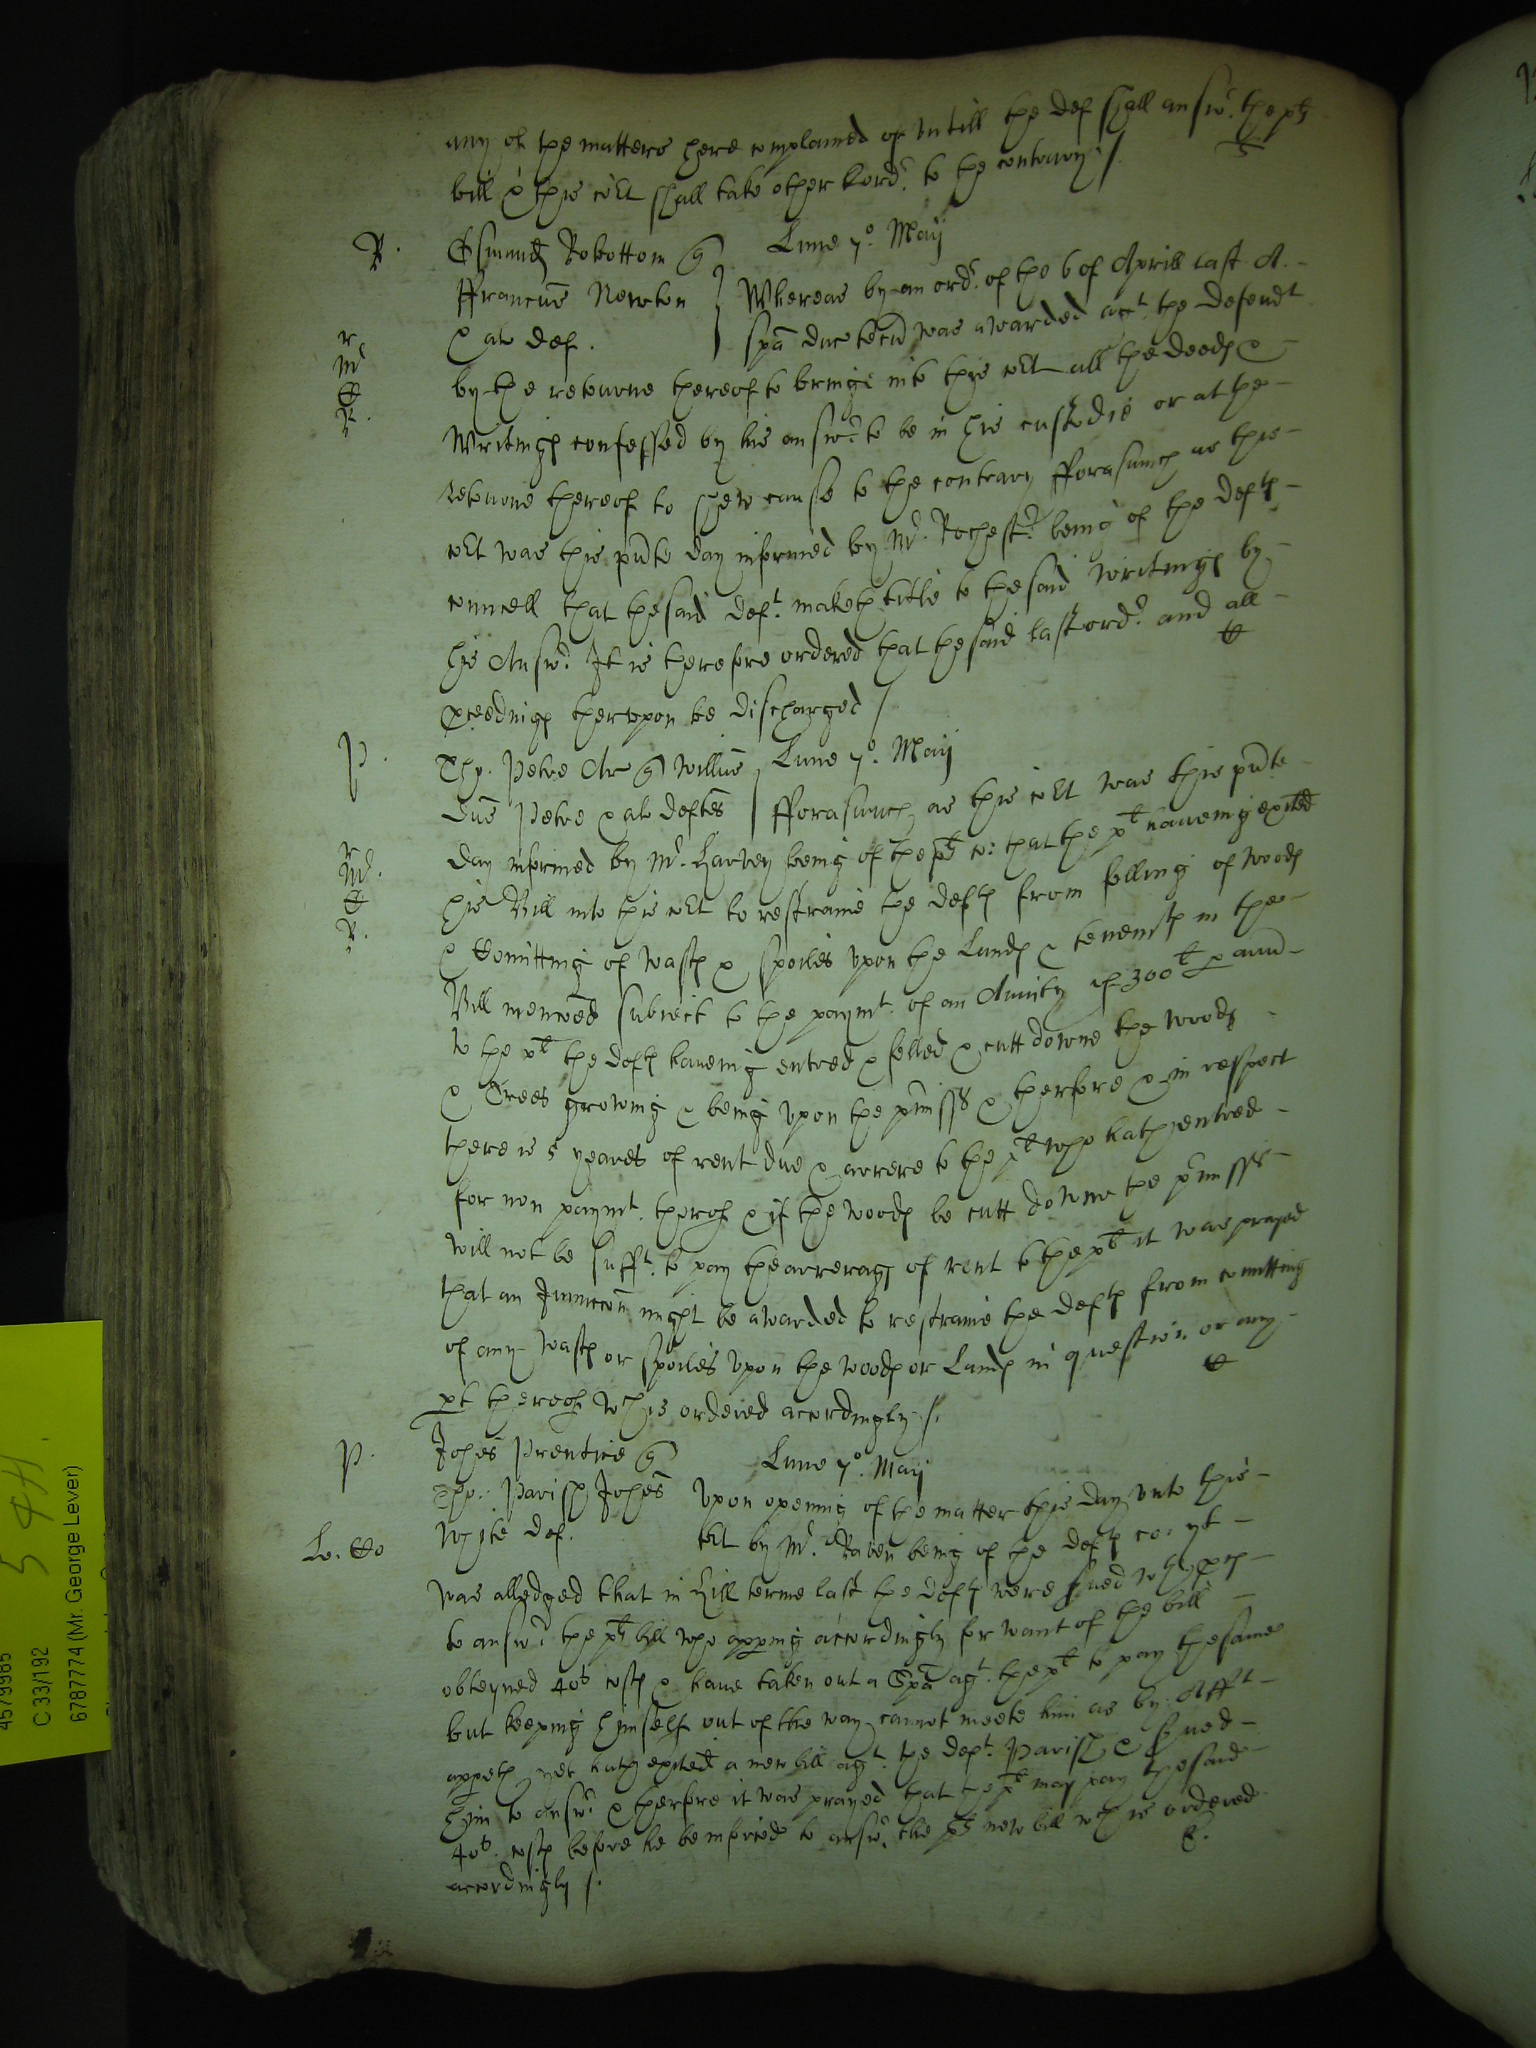 any of the matters here complained of untill the def shall answ.r the pl's
bill & this co:rt shall take other Lord.r to the contrary /.
R. Esmund Robottom q Lune 7.o Maij
ffranciūs Newton Whereas by an ord.r of the 6 of Aprill last A. -
& al' def. spa duc' tecū was awarded ag.t the defend.t
by the retourne thereof to bringe into this co:rt all the deeds & -
Writings confessed by his answ.r to be in his custodie or at the -
retourne thereof to shew cause to the contrary fforasmuch as this -
co:rt was this pn̄te day informed by M.r Rochest.r being of the defts -
councell that the said def.t maketh title to the said writings by -
his Answ.r It is therefore ordered that the said last ord.r and all -
p'ceedings therupon be discharged /
P. Petre Ar q Willm̄ Lune 7.o Maij
Petre & al' deftes fforasmuch as this co:rt was this pn̄te -
day informed by M.r Harvey being of the pl's co: that the pl haveing exited
his Bill into this co:rt to restraine the defts from felling of woods
& Comitting of wasts & spoiles upon the Lands & tenemts in the -
Bill mencōed subiect to the paym.t of an Anuity of 300l p annū -
to the pl the defts haveing entred & felled & cutt downe the woods -
& Trees growing & being upon the p'miss's & therfore & in respect
there is 5 yeares of rent due & arrere to the pl who hath entred -
for non paym.t therof & if the woods be cutt downe the p'miss's -
will not be suff.t to pay the arrerags of rent to the pl it was prayed
that an Iniunccōn might be awarded to restraine the defts from comitting
of any wasts or spoiles upon the woods or Lands in question or any -
pt thereof wch is ordered accordingly /.
P. Johēs Prentice q Lune 7.o Maij
Parish Johēs Upon opening of the matter this day unto this -
White def. co:rt by M.r Raven being of the defts co: yt -
Lo. Co
was alledged that in Hill terme last the defts were served wth p'ces -
to answ.r the pl's bill who apping accordingly for want of the bill -
obteyned 40s costs & have taken out a Spa ag.t the pl to pay the same
but keeping himself out of the way cannot meete him as by Aff.t -
appeth yet hath exited a new bill ag.t the def.t Parish & served -
him to answ.r & therfore it was prayed that the pl may pay the said -
40s. costs before he be inforced to answ.r the pl's new bill wch is ordered
accordingly /.
4579985
C 33/192
6787774 (Mr. George Lever)